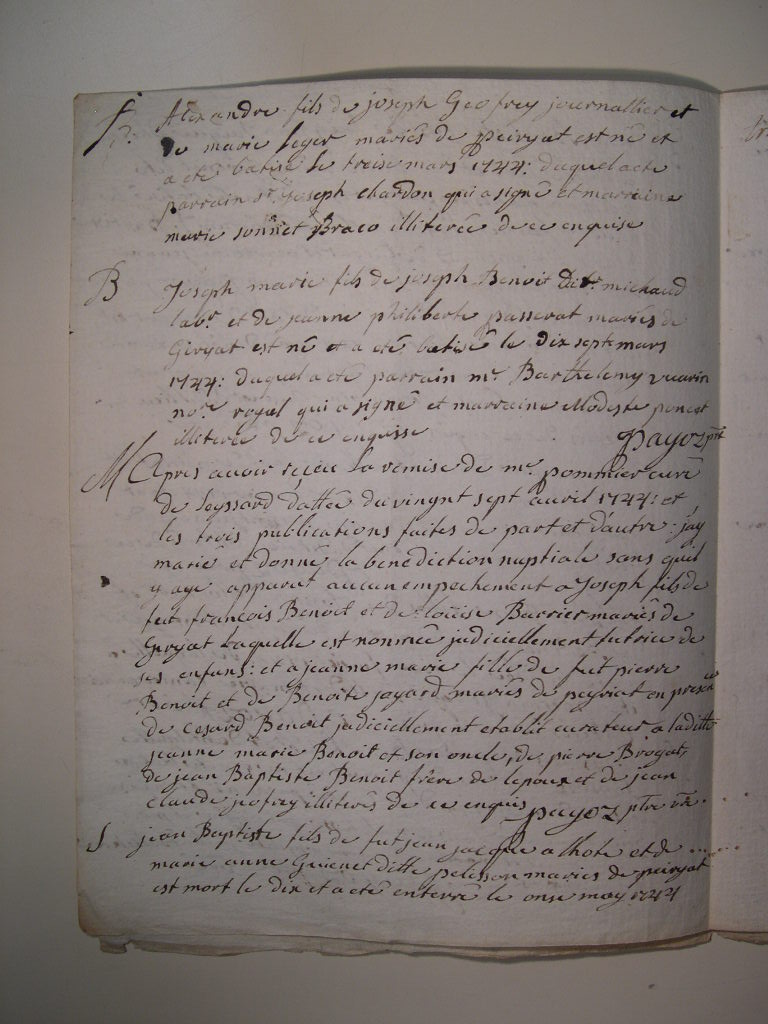 Alexandre fils de joseph Geofrey journallier et
de marie leger mariés de peiryat est né et
a eté batisé le treise mars 1744: duquel a eté
parrain sr. joseph chardon qui a signé et marraine
marie sonnet Braco illiterée de ce enquise
B Joseph marie fils de joseph Benoit dit michaud
labr. et de jeanne philiberte passerat mariés de
Giryat est né et a eté batisé le dix sept mars
1744: duquel a eté parrain mr. Barthelemy vuarin
nore. royal qui a signé et marraine Modeste poncet
illiterée de ce enquisse payoz ptre
M Apres avoir receu la remise de mr. pommier curé
de leyssard dattée du vingt sept avril 1744: et
les trois publications faites de part et d'autre: j'ay
marié et donné la benediction nuptiale sans quil
y aye apparut aucun empechement a Joseph fils de
feu françois Benoit et de loüise Barrier mariés de
Giryat laquelle est nommée judiciellement tutrice de
ses enfans: et a jeanne marie fille de fut pierre
Benoit et de Benoite jayard mariés de peyriat en presce
de cesard Benoit judiciellement etablit curateur a laditte
jeanne marie Benoit et son oncle, de pierre Brogat,
de jean Baptiste Benoit frere de lepoux et de jean
claude jeofrey illiterés de ce enquis payoz ptre vre.
S jean Baptiste fils de fut jean jacque alhote et de ....
marie anne Guienet ditte pelisson mariés de peiryat
est mort le dix et a eté enterré le onse may 1744